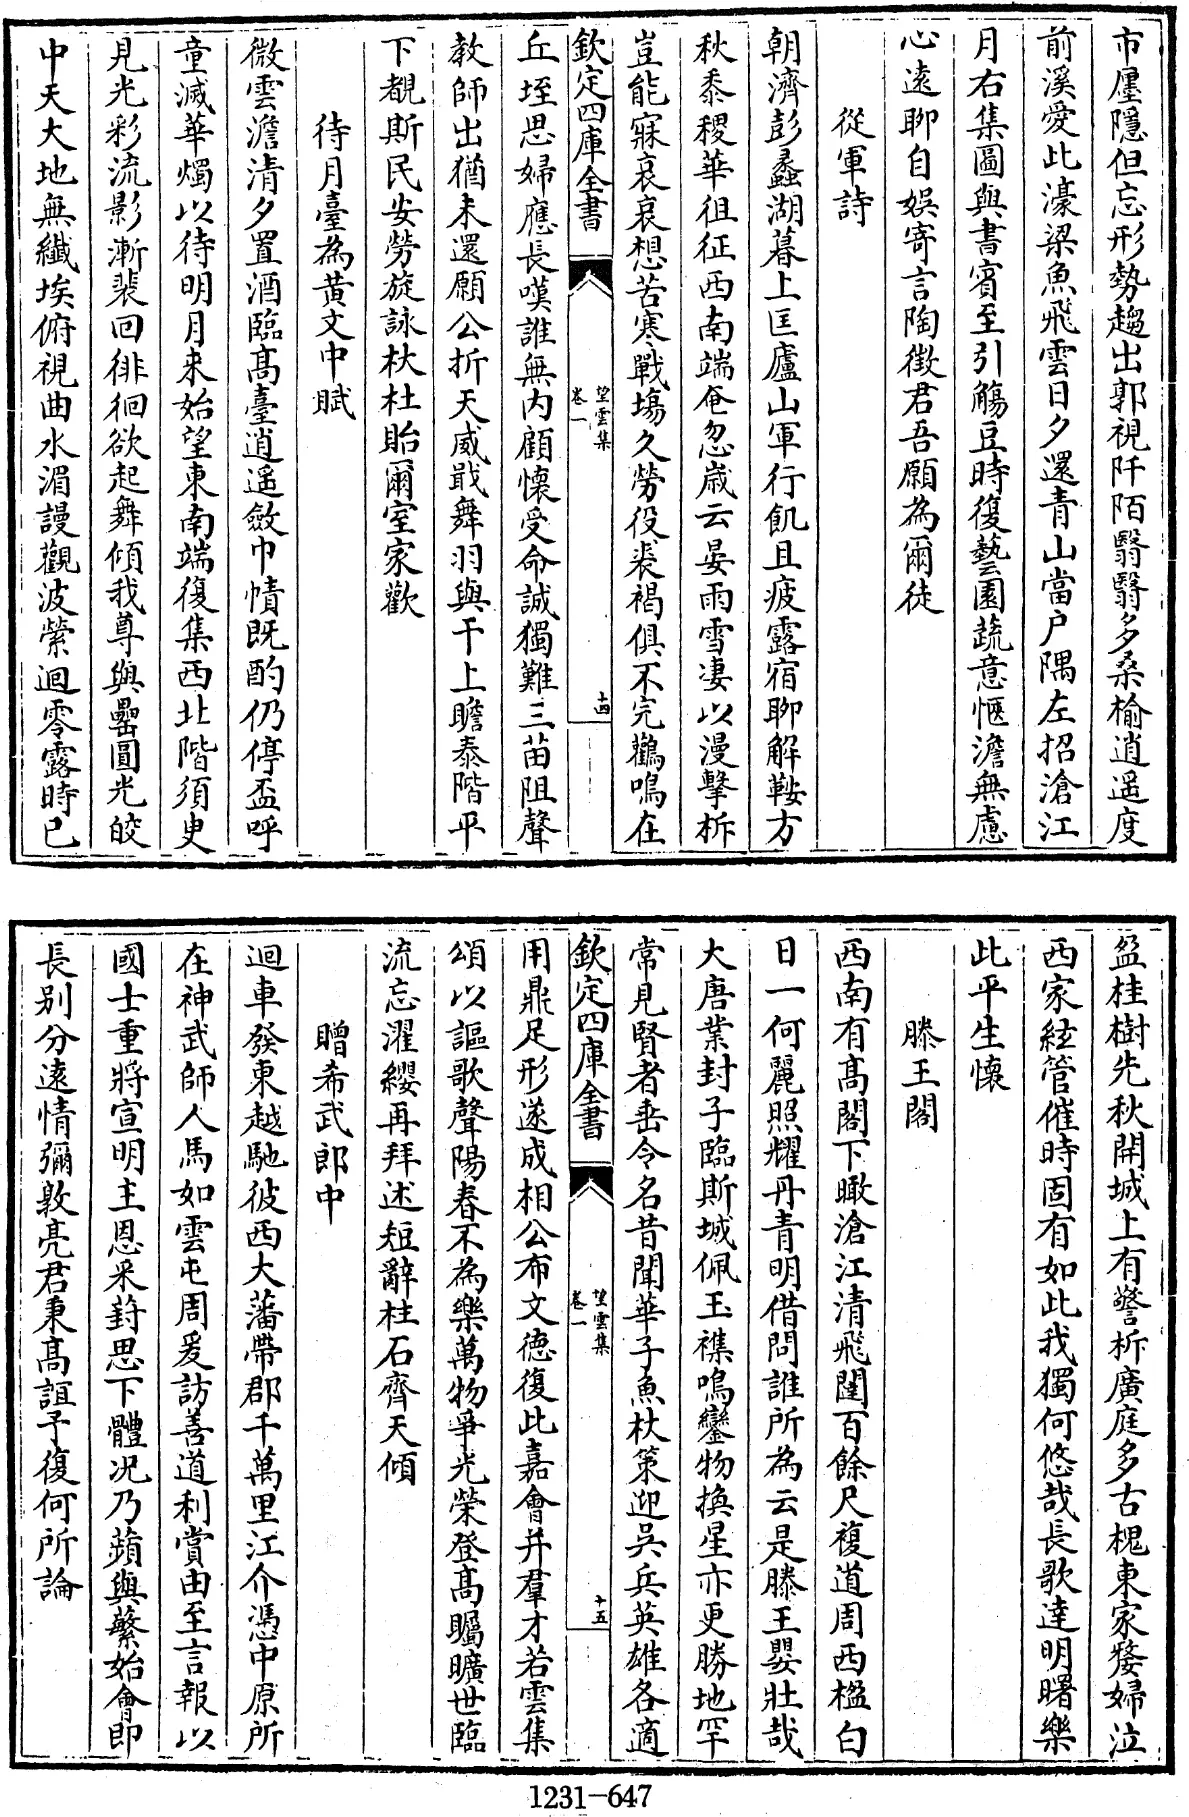 市廛隱但忘形勢趨出郭視阡陌翳翳多桑榆逍遥度
前溪愛此濠梁魚飛雲日夕還青山當户隅左招滄江
月右集圖與書賓至引觴豆時復藝園蔬意愜澹無慮
心遠聊自娱寄言陶徵君吾願為爾徒
從軍詩
朝濟彭蠡湖暮上匡廬山軍行飢且疲露宿聊解鞍方
秋黍稷華徂征西南端奄忽歳云晏雨雪凄以漫擊柝
豈能寐哀哀想苦寒戰塲久勞役裘褐俱不完鸛鳴在
欽定四庫全書
望雲集
卷一
十四
丘垤思婦應長嘆誰無内顧懷受命誠獨難三苗阻聲
教師出猶未還願公折天威戢舞羽與干上瞻泰階平
下覩斯民安勞旋詠杕杜貽爾室家歡
待月臺為黄文中賦
微雲澹清夕置酒臨髙臺逍遥斂巾幘既酌仍停盃呼
童滅華燭以待明月来始望東南端復集西北階須臾
見光彩流影漸裴回徘徊欲起舞傾我尊與罍圓光皎
中天大地無纎埃俯視曲水湄謾觀波縈迴零露時已
盈桂樹先秋開城上有警柝廣庭多古槐東家嫠婦泣
西家絃管催時固有如此我獨何悠哉長歌達明曙樂
此平生懷
滕王閣
西南有髙閣下瞰滄江清飛闥百餘尺複道周西楹白
日一何麗照耀丹青明借問誰所為云是滕王嬰壯哉
大唐業封子臨斯城佩玉襍鳴鑾物換星亦更勝地罕
常見賢者垂令名昔聞華子魚杖策迎吳兵英雄各適
欽定四庫全書
望雲集
卷一
十五
用鼎足形遂成相公布文德復此嘉會并羣才若雲集
頌以謳歌聲陽春不為樂萬物爭光榮登髙矚曠世臨
流忘濯纓再拜述短辭柱石齊天傾
贈希武郎中
迴車發東越馳彼西大藩帶郡千萬里江介憑中原所
在神武師人馬如雲屯周爰訪善道利賞由至言報以
國士重將宣明主恩采葑思下體况乃蘋與蘩始會即
長别分逺情彌敦亮君秉髙誼予復何所論
1231—647